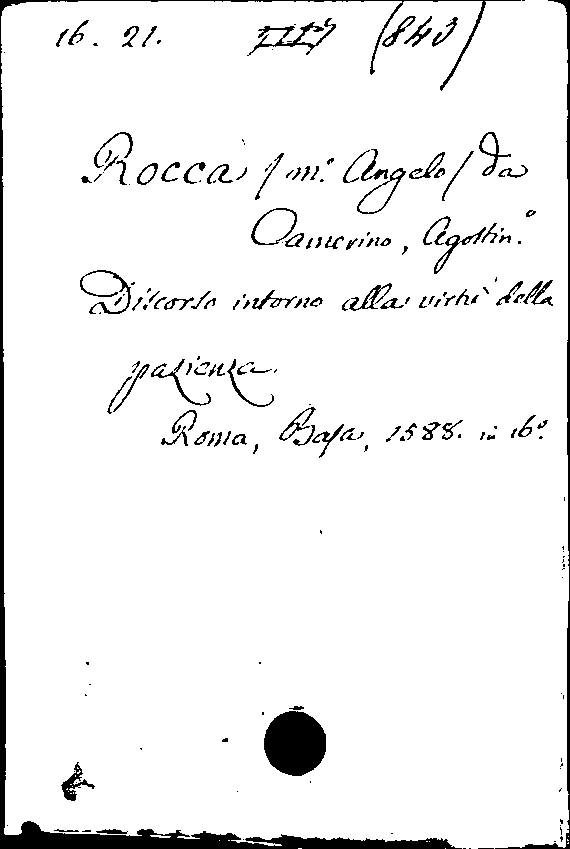 16. 21. (843)
Rocca / m.° Angelo / da
Camerino, Agostin.°
Discorso intorno alla virtù della
pazienza.
Roma, Basa, 1588. in 16°.